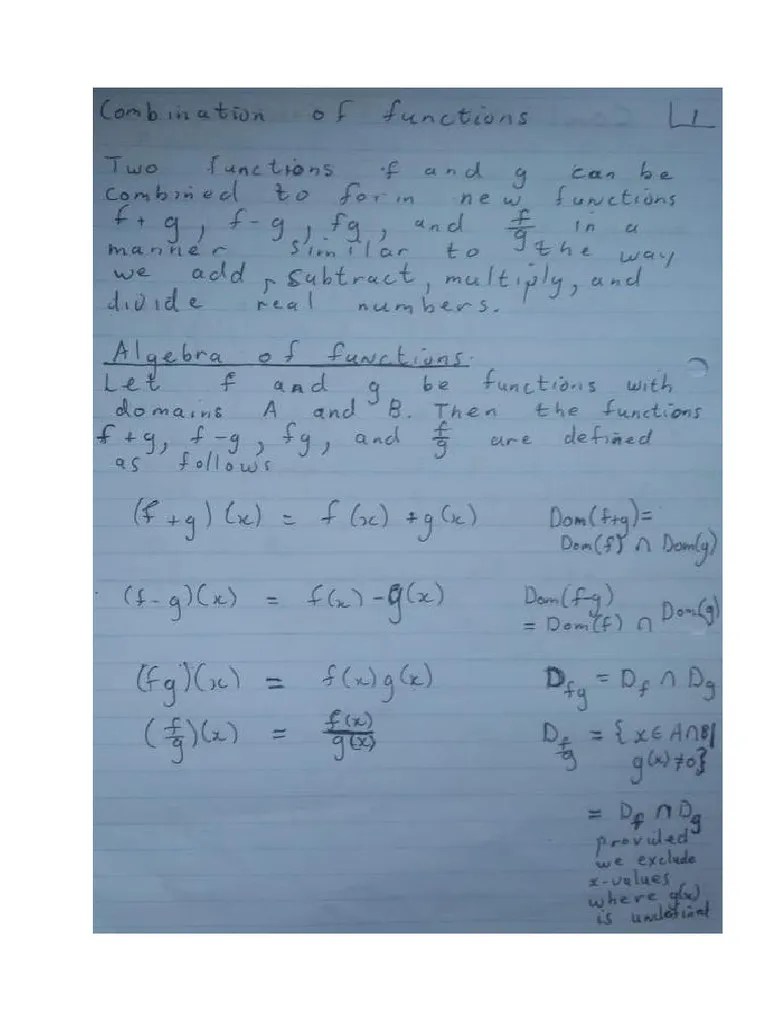 Combination of functions 1
Two functions f and g can be
combined to form new functions
f + g, f - g, fg, and f/g in a
manner similar to the way
we add, subtract, multiply, and
divide real numbers.
Algebra of functions.
Let f and g be functions with
domains A and B. Then the functions
f + g, f - g, fg, and f/g are defined
as follows
(f + g)(x) = f(x) + g(x) Dom(f+g) =
Dom(f) ∩ Dom(g)
(f - g)(x) = f(x) - g(x) Dom(f-g)
= Dom(f) ∩ Dom(g)
(fg)(x) = f(x)g(x) D_fg = D_f ∩ D_g
(f/g)(x) = f(x)/g(x) D_f/g = {x ∈ A∩B|
g(x) ≠ 0}
= D_f ∩ D_g
provided
we exclude
x-values
where g(x)
is